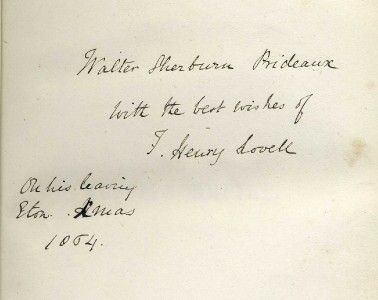 Walter Sherburn Prideaux
with the best wishes of
F. Henry Lovell
On his leaving
Eton. Xmas
1864.